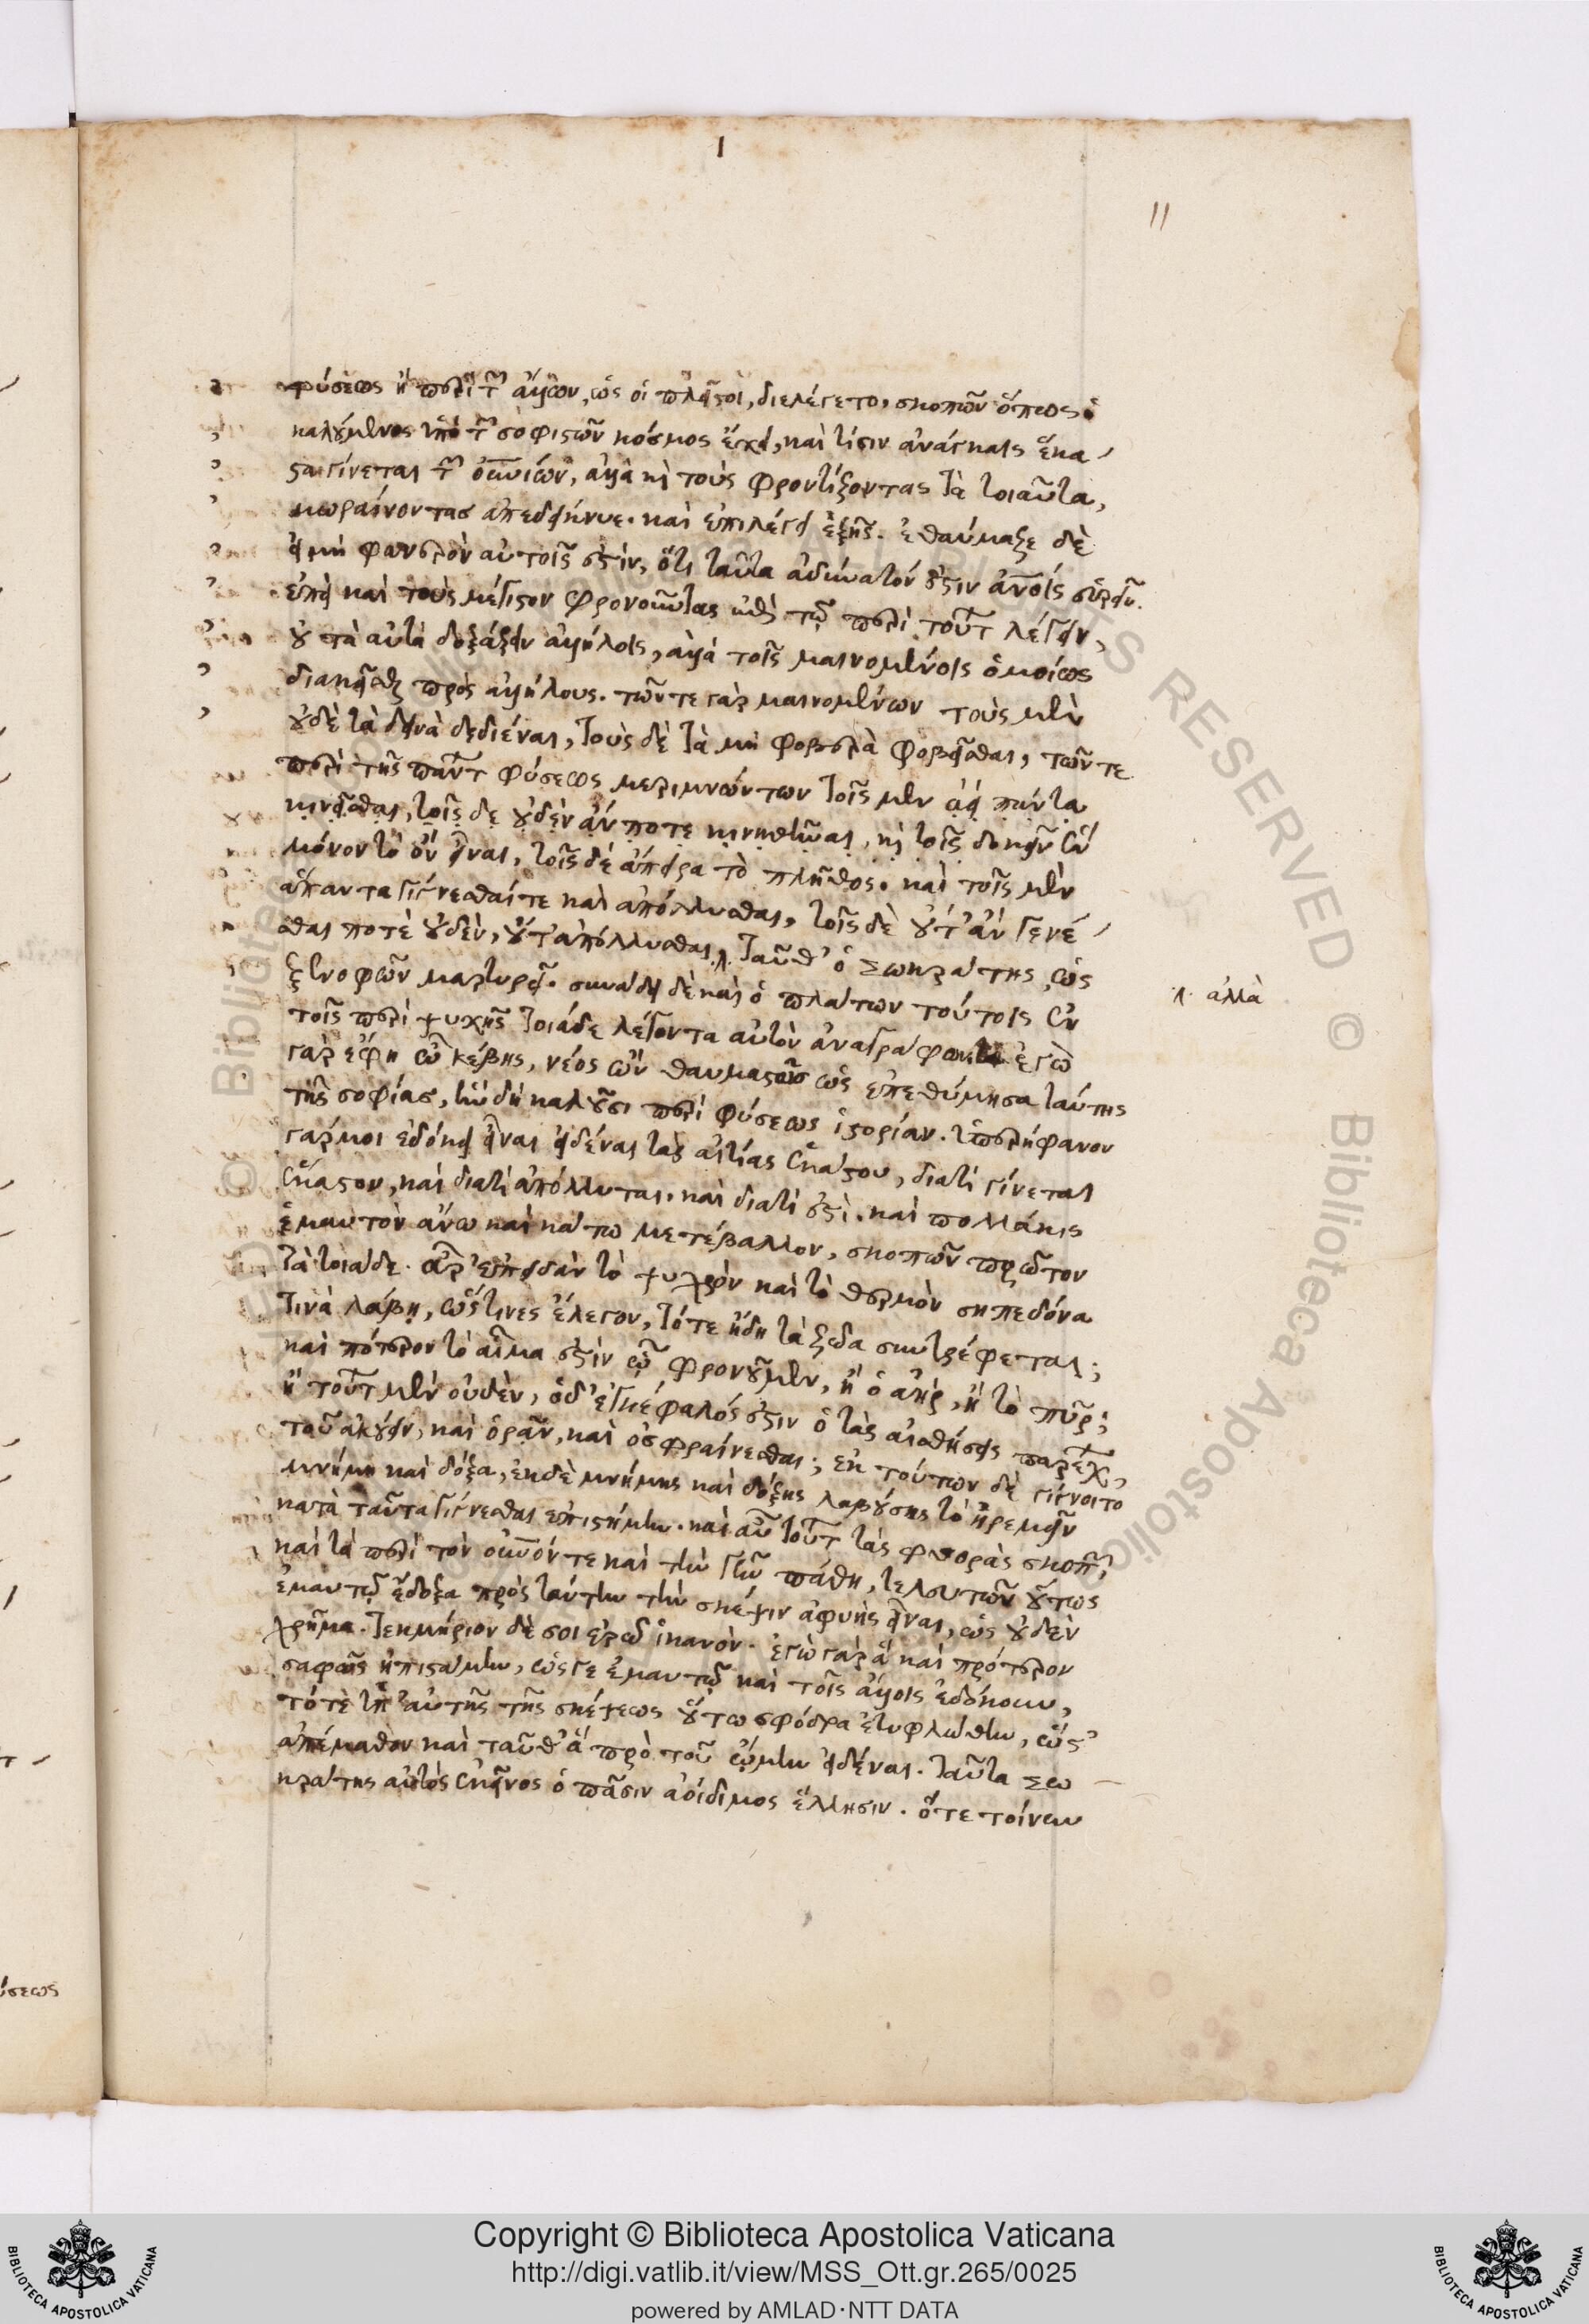 1
11
φύσεως ἢ περὶ τῶν ἄλλων, ὡς οἱ πλεῖστοι, διελέγετο, σκοπῶν ὅπως ὁ
καλούμενος ὑπὸ τῶν σοφιστῶν κόσμος ἔχει, καὶ τίσιν ἀνάγκαις ἕκα
στα γίνεται τῶν οὐρανίων, ἀλλὰ καὶ τοὺς φροντίζοντας τὰ τοιαῦτα,
μωραίνοντας ἀπεδείκνυε. καὶ ἐπιλέγει ἑξῆς. ἐθαύμαζε δὲ
εἰ μὴ φανερὸν αὐτοῖς ἐστίν, ὅτι ταῦτα ἀδύνατόν ἐστιν ἀνοις εὑρεῖν.
ἐπεὶ καὶ τοὺς μέγιστον φρονοῦντας ἐπὶ τῷ περὶ τούτων λέγειν,
οὐ τὰ αὐτὰ δοξάζειν ἀλλήλοις, ἀλλὰ τοῖς μαινομένοις ὁμοίως
διακεῖσθαι πρὸς ἀλλήλους. τῶν τε γὰρ μαινομένων τοὺς μὲν
οὐδὲ τὰ δεινὰ δεδιέναι, τοὺς δὲ τὰ μὴ φοβερὰ φοβεῖσθαι, τῶν τε
περὶ τῆς πάντων φύσεως μεριμνώντων τοῖς μὲν ἀεὶ πάντα
κινεῖσθαι, τοῖς δὲ οὐδὲν ἄν ποτε κινηθῆναι, καὶ τοῖς δοκεῖν ἓν
μόνον τὸ ὂν εἶναι, τοῖς δὲ ἄπειρα τὸ πλῆθος. καὶ τοῖς μὲν
ἅπαντα γίγνεσθαί τε καὶ ἀπόλλυσθαι, τοῖς δὲ οὔτ' ἂν γενέ
σθαι ποτὲ οὐδὲν, οὔτ' ἀπόλλυσθαι. Ταῦθ' ὁ Σωκράτης, ὡς
ξενοφῶν μαρτυρεῖ. συνάδει δὲ καὶ ὁ πλάτων τούτοις ἐν
τοῖς περὶ ψυχῆς τοιάδε λέγοντα αὐτὸν ἀναγράφων ἐγὼ
γὰρ ἔφη ὦ κέβης, νέος ὢν θαυμαστῶς ὡς ἐπεθύμησα ταύτης
τῆς σοφίας, ἣν δὴ καλοῦσι περὶ φύσεως ἱστορίαν. ὑπερήφανον
γάρ μοι ἐδόκει εἶναι εἰδέναι τὰς αἰτίας ἑκάστου, διατί γίνεται
ἕκαστον, καὶ διατί ἀπόλλυται. καὶ διατί ἐστὶ. καὶ πολλάκις
ἐμαυτὸν ἄνω καὶ κάτω μετέβαλλον, σκοπῶν πρῶτον
τὰ τοιάδε. ἆρ' ἐπειδὰν τὸ ψυχρὸν καὶ τὸ θερμὸν σηπεδόνα
τινὰ λάβῃ, ὥς τινες ἔλεγον, τότε ἤδη τὰ ζῶα συντρέφεται;
καὶ πότερον τὸ αἷμα ἐστὶν ᾧ φρονοῦμεν, ἢ ὁ ἀὴρ, ἢ τὸ πῦρ;
ἢ τούτων μὲν οὐδὲν, ὁ δ' ἐγκέφαλός ἐστιν ὁ τὰς αἰσθήσεις παρέχων,
τοῦ ἀκούειν, καὶ ὁρᾶν, καὶ ὀσφραίνεσθαι; ἐκ τούτων δὲ γίγνοιτο
μνήμη καὶ δόξα, ἐκ δὲ μνήμης καὶ δόξης λαβούσης τὸ ἠρεμεῖν
κατὰ ταῦτα γίγνεσθαι ἐπιστήμην. καὶ αὖ τούτων τὰς φθορὰς σκοπῶν,
καὶ τὰ περὶ τὸν οὐρανόν τε καὶ τὴν γῆν πάθη, τελευτῶν οὕτως
ἐμαυτῷ ἔδοξα πρὸς ταύτην τὴν σκέψιν ἀφυὴς εἶναι, ὡς οὐδὲν
χρῆμα. Τεκμήριον δέ σοι ἐρῶ ἱκανόν. ἐγὼ γὰρ ἃ καὶ πρότερον
σαφῶς ἠπιστάμην, ὥς γε ἐμαυτῷ καὶ τοῖς ἄλλοις ἐδόκουν,
τότε ὑπ' αὐτῆς τῆς σκέψεως οὕτω σφόδρα ἐτυφλώθην, ὥστ'
ἀπέμαθον καὶ ταῦθ' ἃ πρὸ τοῦ ᾤμην εἰδέναι. Ταῦτα Σω
κράτης αὐτὸς ἐκεῖνος ὁ πᾶσιν ἀοίδιμος ἕλλησιν. ὅτε τοίνυν
ἀλλὰ
ύσεως
© Biblioteca Apostolica Vaticana
ALL RIGHTS RESERVED
© Biblioteca Apostolica
Copyright © Biblioteca Apostolica Vaticana
http://digi.vatlib.it/view/MSS_Ott.gr.265/0025
powered by AMLAD·NTT DATA
BIBLIOTECA APOSTOLICA VATICANA
BIBLIOTECA APOSTOLICA VATICANA